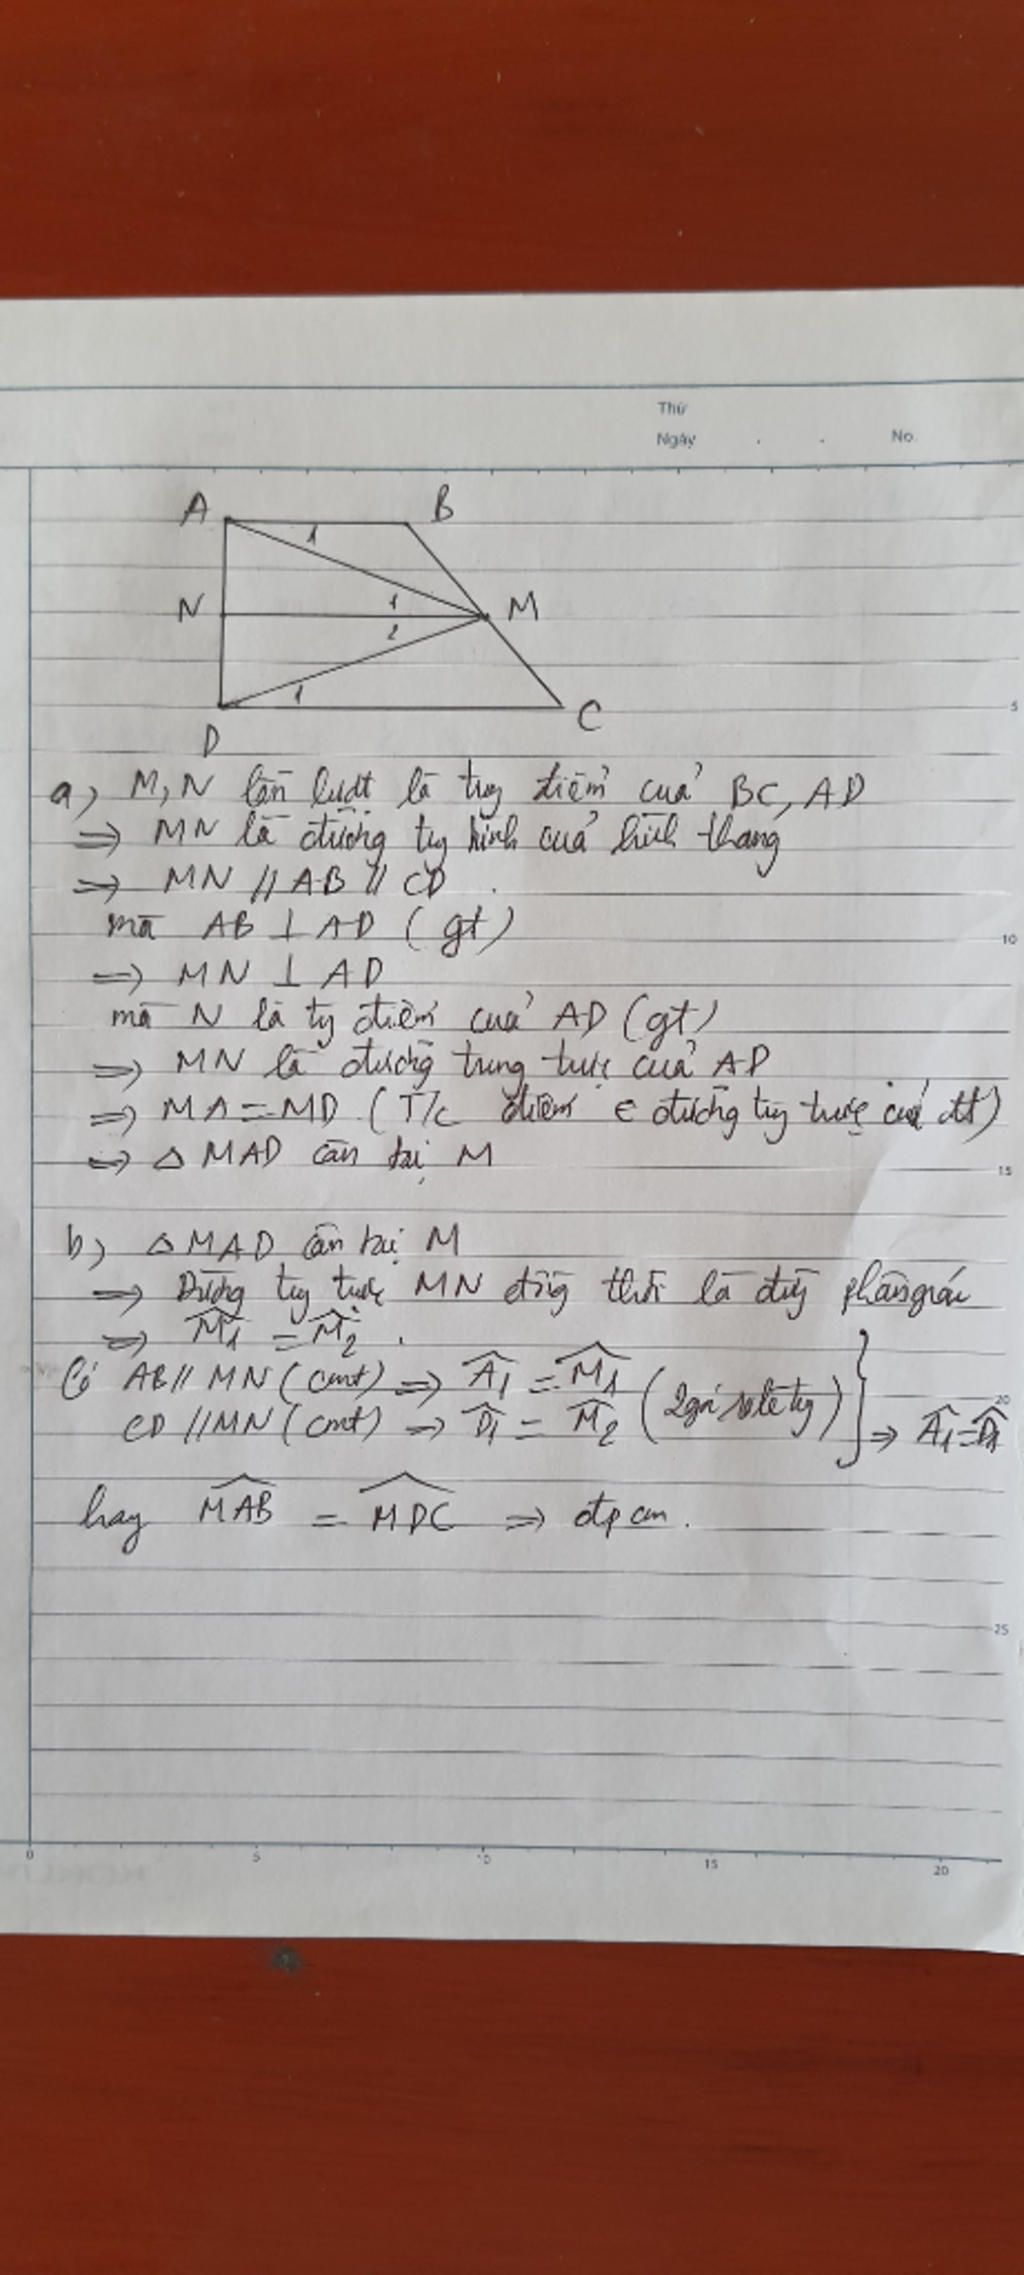 Thứ
Ngày . . No.
A B
1
N 1 M
2
1
D C
5
a) M, N lần lượt là trg điểm của BC, AD
=> MN là đường tg bình của hình thang
=> MN // AB // CD
mà AB ⊥ AD (gt)
10
=> MN ⊥ AD
mà N là tg điểm của AD (gt)
=> MN là đường trung trực của AD
=> MA = MD (T/c điểm ∈ đường tg trực của đt)
=> △ MAD cân tại M
15
b) △ MAD cân tại M
=> Đường tg trực MN đồng thời là đg phân giác
=> M̂1 = M̂2 .
Có AB // MN (cmt) => Â1 = M̂1
CD // MN (cmt) => D̂1 = M̂2 (2 góc so le tg) } => Â1 = D̂1
20
hay M͡AB = M͡DC => đpcm .
25
0 5 10 15 20